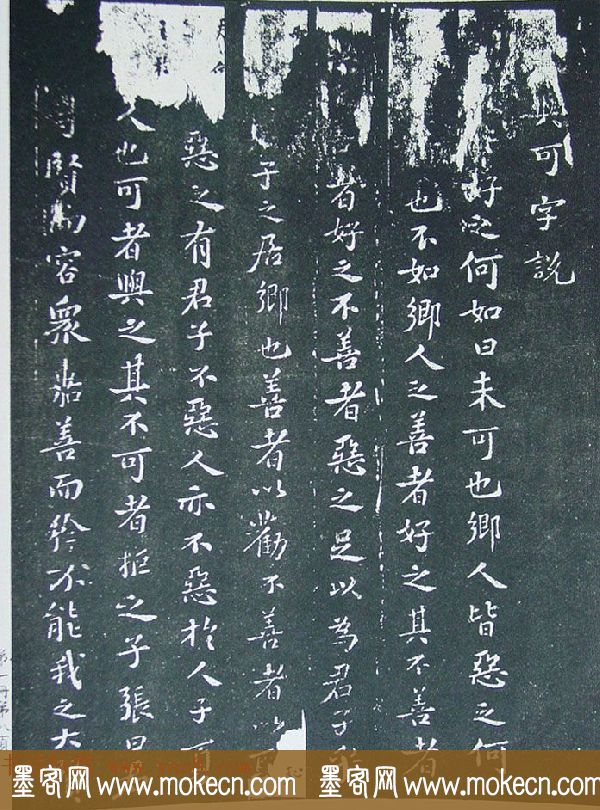 可字說
好之何如曰未可也鄉人皆惡之何
也不如鄉人之善者好之其不善者
者好之不善者惡之足以為君子
子之居鄉也善者以勸不善者以
惡之有君子不惡人亦不惡於人子
人也可者與之其不可者拒之子張曰
賢而容眾嘉善而矜不能我之大
墨客网 www.mokecn.com 墨客网 www.mokecn.com